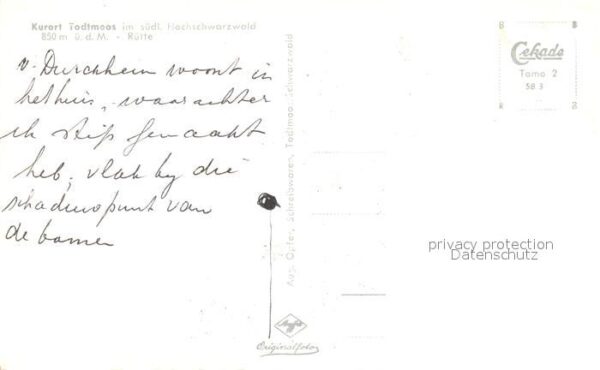 Kurort Todtmoos im südl. Hochschwarzwald
850 m ü. d. M. - Rütte
v. Durckheim woont in
het huis, waarachter
ik stip gemaakt
heb, vlak by die
schaduwpunt van
de bomen
Aug. Opfer, Schreibwaren, Todtmoos Schwarzwald
Agfa
Originalfoto
Cekade
Tomo 2
SB 3
privacy protection
Datenschutz